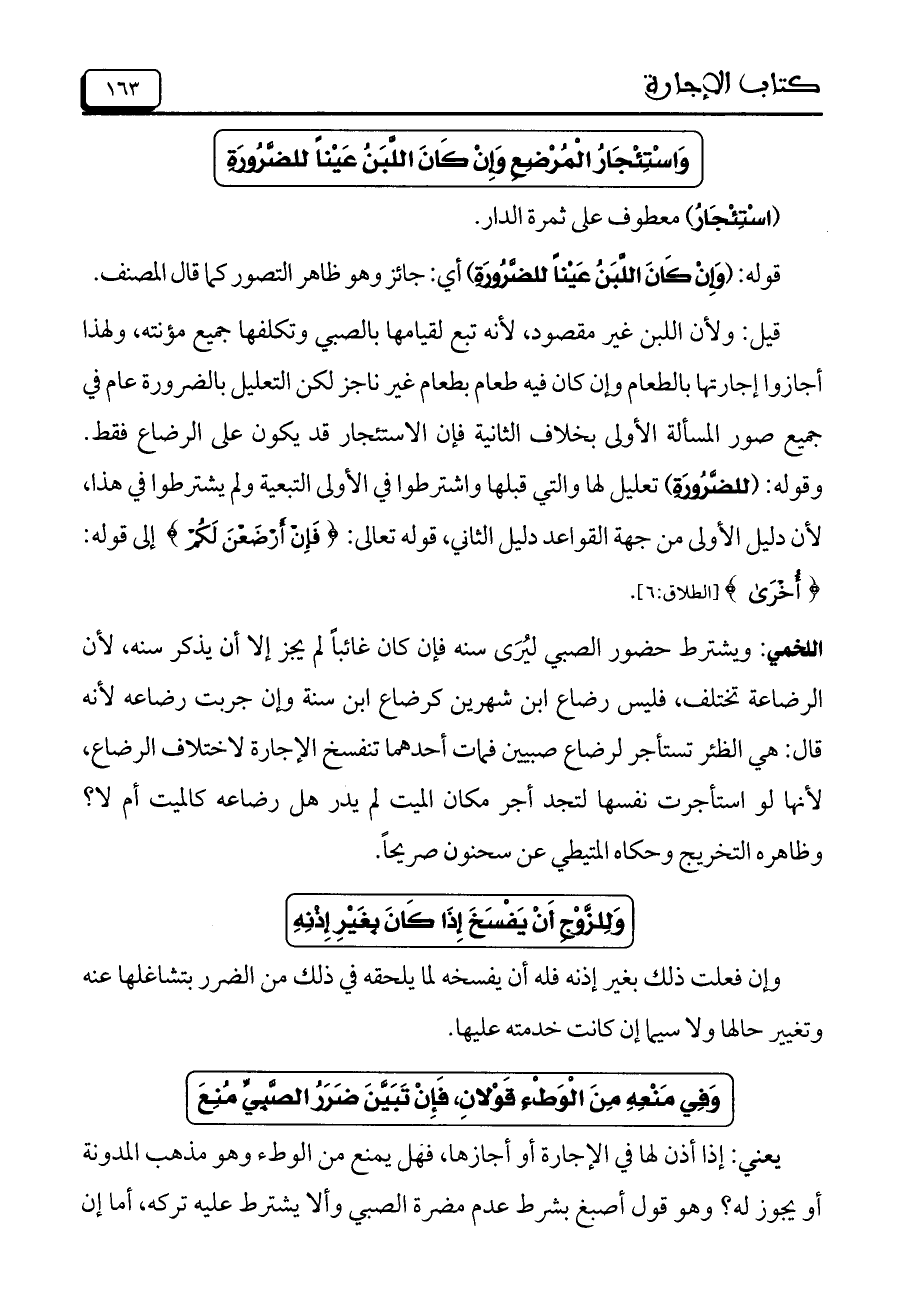 كتاب الإجارة
١٦٣
وَاسْتِئْجَارُ الْمُرْضِعِ وَإِنْ كَانَ اللَّبَنُ عَيْناً للضَّرُورَةِ
(اسْتِئْجَارُ) معطوف على ثمرة الدار.
قوله: (وَإِنْ كَانَ اللَّبَنُ عَيْناً للضَّرُورَةِ) أي: جائز وهو ظاهر التصور كما قال المصنف.
قيل: ولأن اللبن غير مقصود، لأنه تبع لقيامها بالصبي وتكلفها جميع مؤنته، ولهذا
أجازوا إجارتها بالطعام وإن كان فيه طعام بطعام غير ناجز لكن التعليل بالضرورة عام في
جميع صور المسألة الأولى بخلاف الثانية فإن الاستئجار قد يكون على الرضاع فقط.
وقوله: (للضَّرُورَةِ) تعليل لها والتي قبلها واشترطوا في الأولى التبعية ولم يشترطوا في هذا،
لأن دليل الأولى من جهة القواعد دليل الثاني، قوله تعالى: ﴿ فَإِنْ أَرْضَعْنَ لَكُمْ ﴾ إلى قوله:
﴿ أُخْرَىٰ ﴾ [الطلاق:٦].
اللخمي: ويشترط حضور الصبي ليُرَى سنه فإن كان غائباً لم يجز إلا أن يذكر سنه، لأن
الرضاعة تختلف، فليس رضاع ابن شهرين كرضاع ابن سنة وإن جربت رضاعه لأنه
قال: هي الظئر تستأجر لرضاع صبيين فمات أحدهما تنفسخ الإجارة لاختلاف الرضاع،
لأنها لو استأجرت نفسها لتجد أجر مكان الميت لم يدر هل رضاعه كالميت أم لا؟
وظاهره التخريج وحكاه المتيطي عن سحنون صريحاً.
وَلِلزَّوْجِ أَنْ يَفْسَخَ إِذَا كَانَ بِغَيْرِ إِذْنِهِ
وإن فعلت ذلك بغير إذنه فله أن يفسخه لما يلحقه في ذلك من الضرر بتشاغلها عنه
وتغيير حالها ولا سيما إن كانت خدمته عليها.
وَفِي مَنْعِهِ مِنَ الْوَطْءِ قَوْلانِ، فَإِنْ تَبَيَّنَ ضَرَرُ الصَّبِيِّ مُنِعَ
يعني: إذا أذن لها في الإجارة أو أجازها، فهل يمنع من الوطء وهو مذهب المدونة
أو يجوز له؟ وهو قول أصبغ بشرط عدم مضرة الصبي وألا يشترط عليه تركه، أما إن